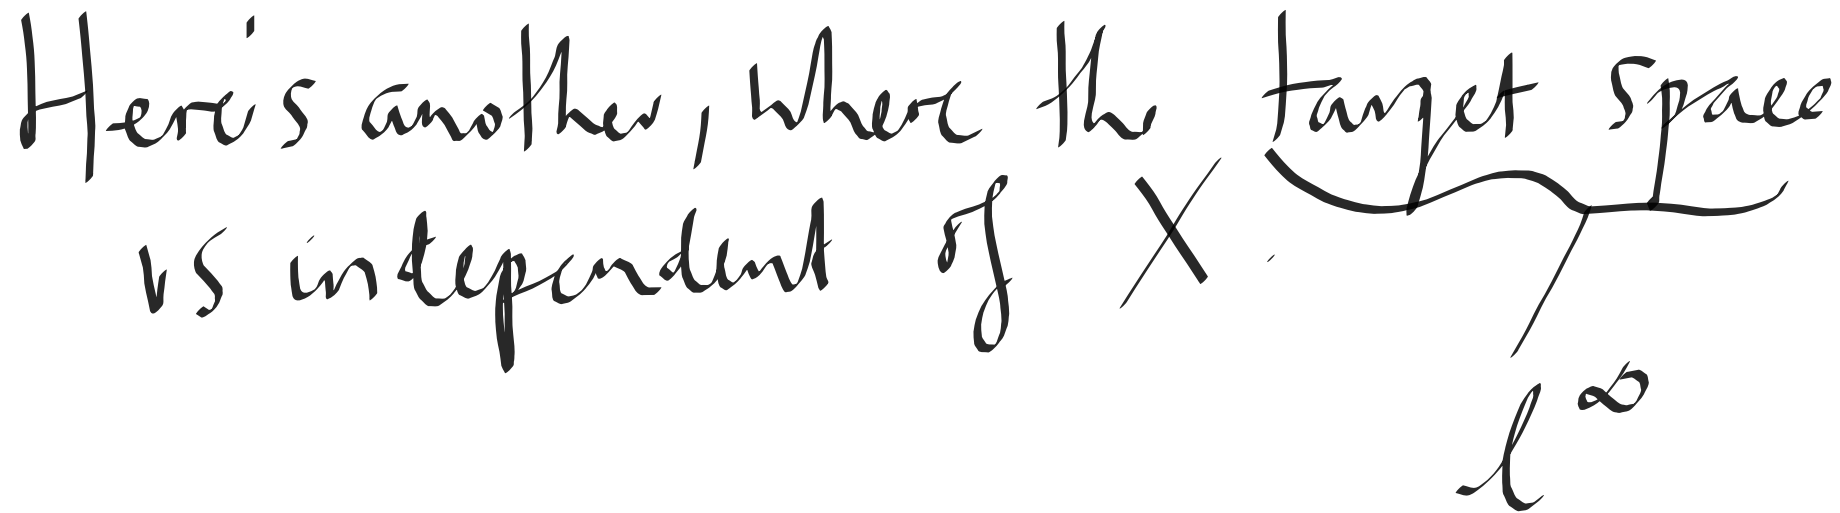 Here's another, where the target space
is independent of X.
l^∞